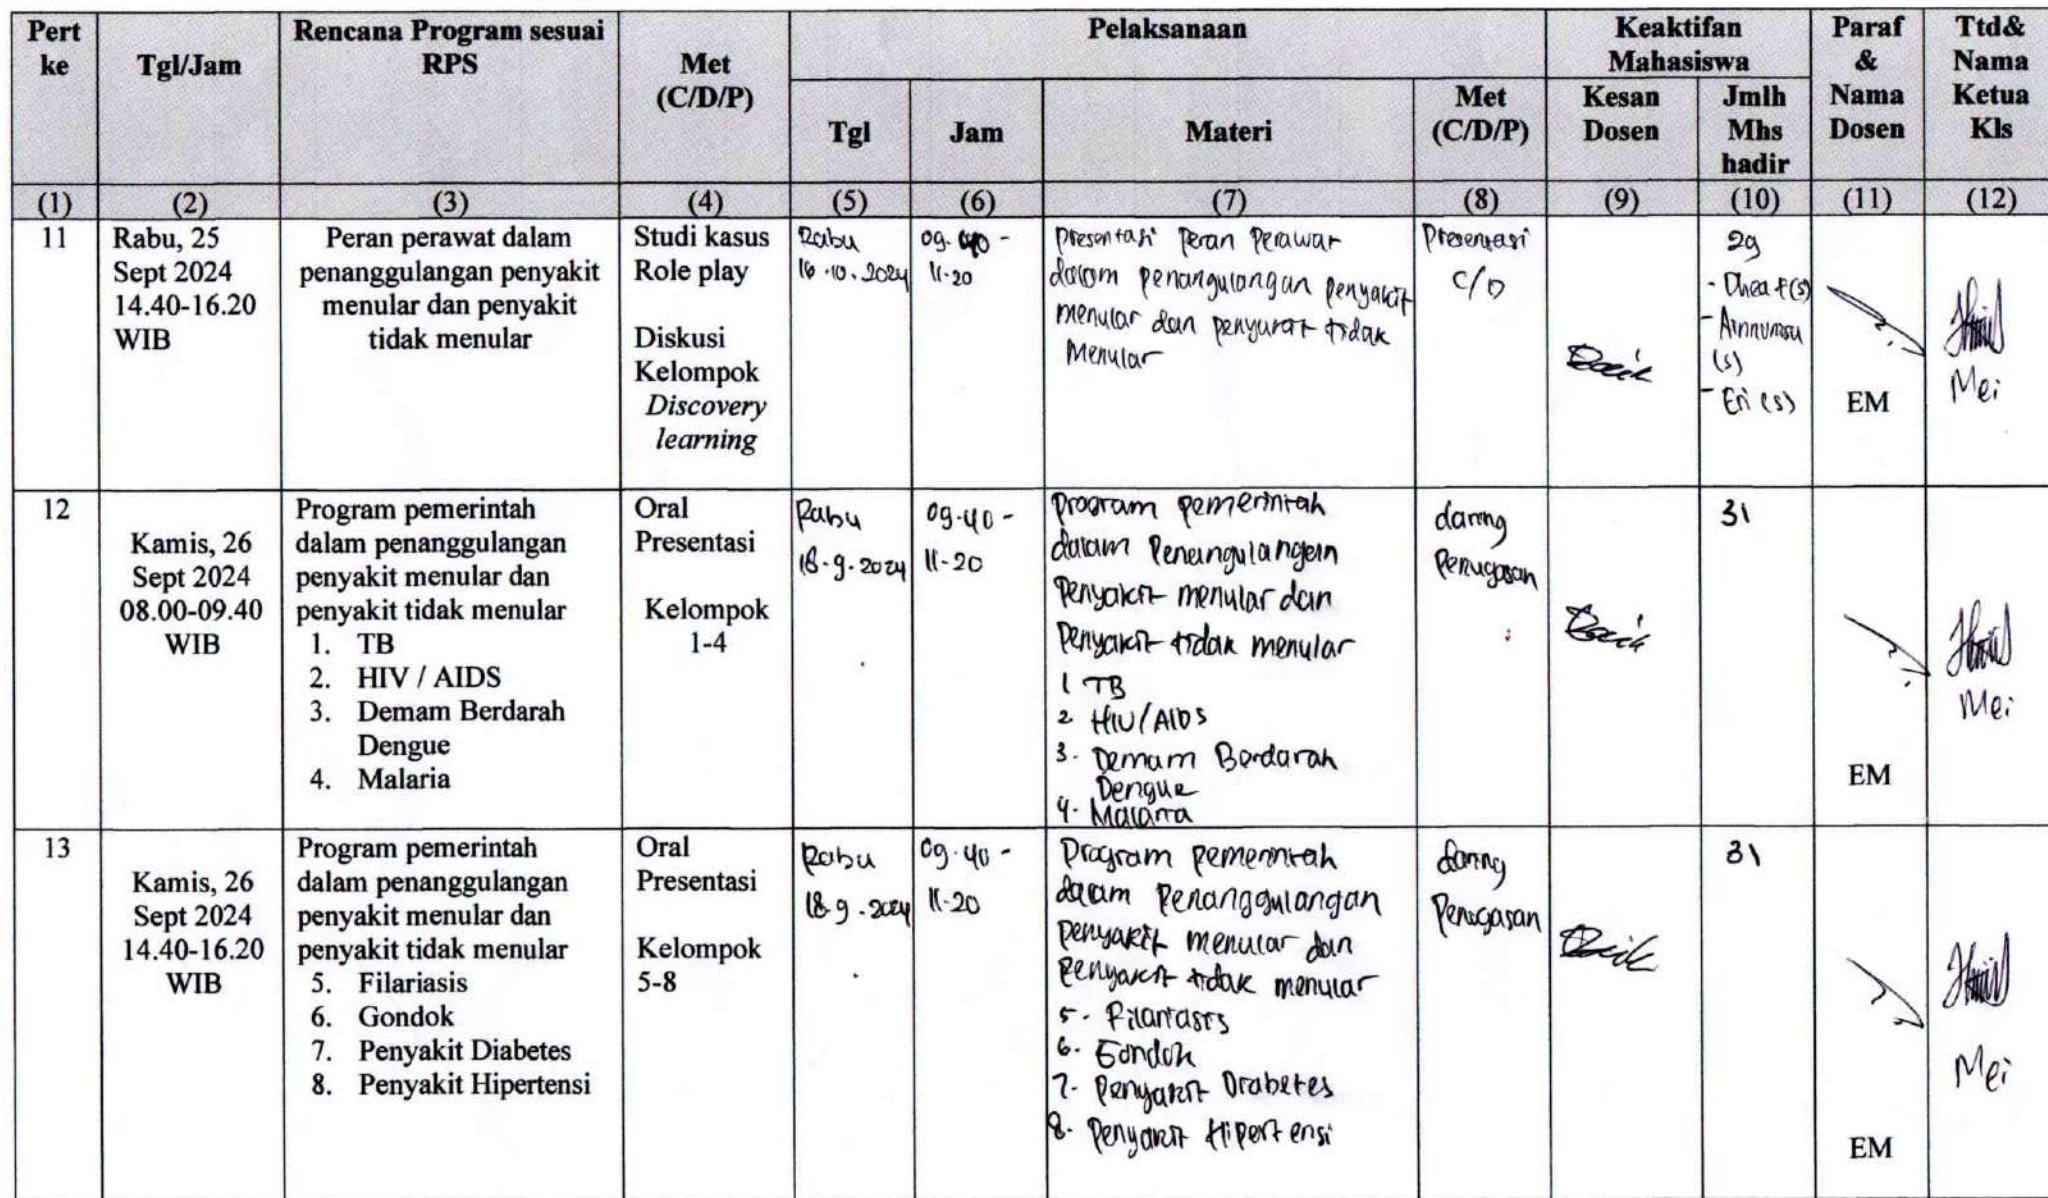 Pert ke
Tgl/Jam
Rencana Program sesuai RPS
Met (C/D/P)
Pelaksanaan
Keaktifan Mahasiswa
Paraf & Nama Dosen
Ttd& Nama Ketua Kls
Tgl
Jam
Materi
Met (C/D/P)
Kesan Dosen
Jmlh Mhs hadir
(1) (2) (3) (4) (5) (6) (7) (8) (9) (10) (11) (12)
11
Rabu, 25
Sept 2024
14.40-16.20
WIB
Peran perawat dalam
penanggulangan penyakit
menular dan penyakit
tidak menular
Studi kasus
Role play
Diskusi
Kelompok
Discovery
learning
Rabu
16.10.2024
09.40 -
11-20
presentasi Peran Perawat
dalam penangulangan penyakit
menular dan penyakit tidak
Menular
Presentasi
C/D
Baik
29
- Dhea F(s)
(s)
- Eri (s)
EM
Mei
12
Kamis, 26
Sept 2024
08.00-09.40
WIB
Program pemerintah
dalam penanggulangan
penyakit menular dan
penyakit tidak menular
1. TB
2. HIV / AIDS
3. Demam Berdarah
Dengue
4. Malaria
Oral
Presentasi
Kelompok
1-4
Rabu
18-9-2024
09.40 -
11-20
Program pemerintah
dalam Penangulangan
Penyakit menular dan
Penyakit tidak menular
1 TB
2 HIV/AIDS
3. Demam Berdarah
Dengue
4. Malaria
daring
Penugasan
Baik
31
EM
Mei
13
Kamis, 26
Sept 2024
14.40-16.20
WIB
Program pemerintah
dalam penanggulangan
penyakit menular dan
penyakit tidak menular
5. Filariasis
6. Gondok
7. Penyakit Diabetes
8. Penyakit Hipertensi
Oral
Presentasi
Kelompok
5-8
Rabu
18-9-2024
09.40 -
11-20
Program pemerintah
dalam Penanggulangan
penyakit menular dan
Penyakit tidak menular
5. Filariasis
6. Gondok
7. Penyakit Diabetes
8. Penyakit Hipertensi
daring
Penugasan
Baik
31
EM
Mei